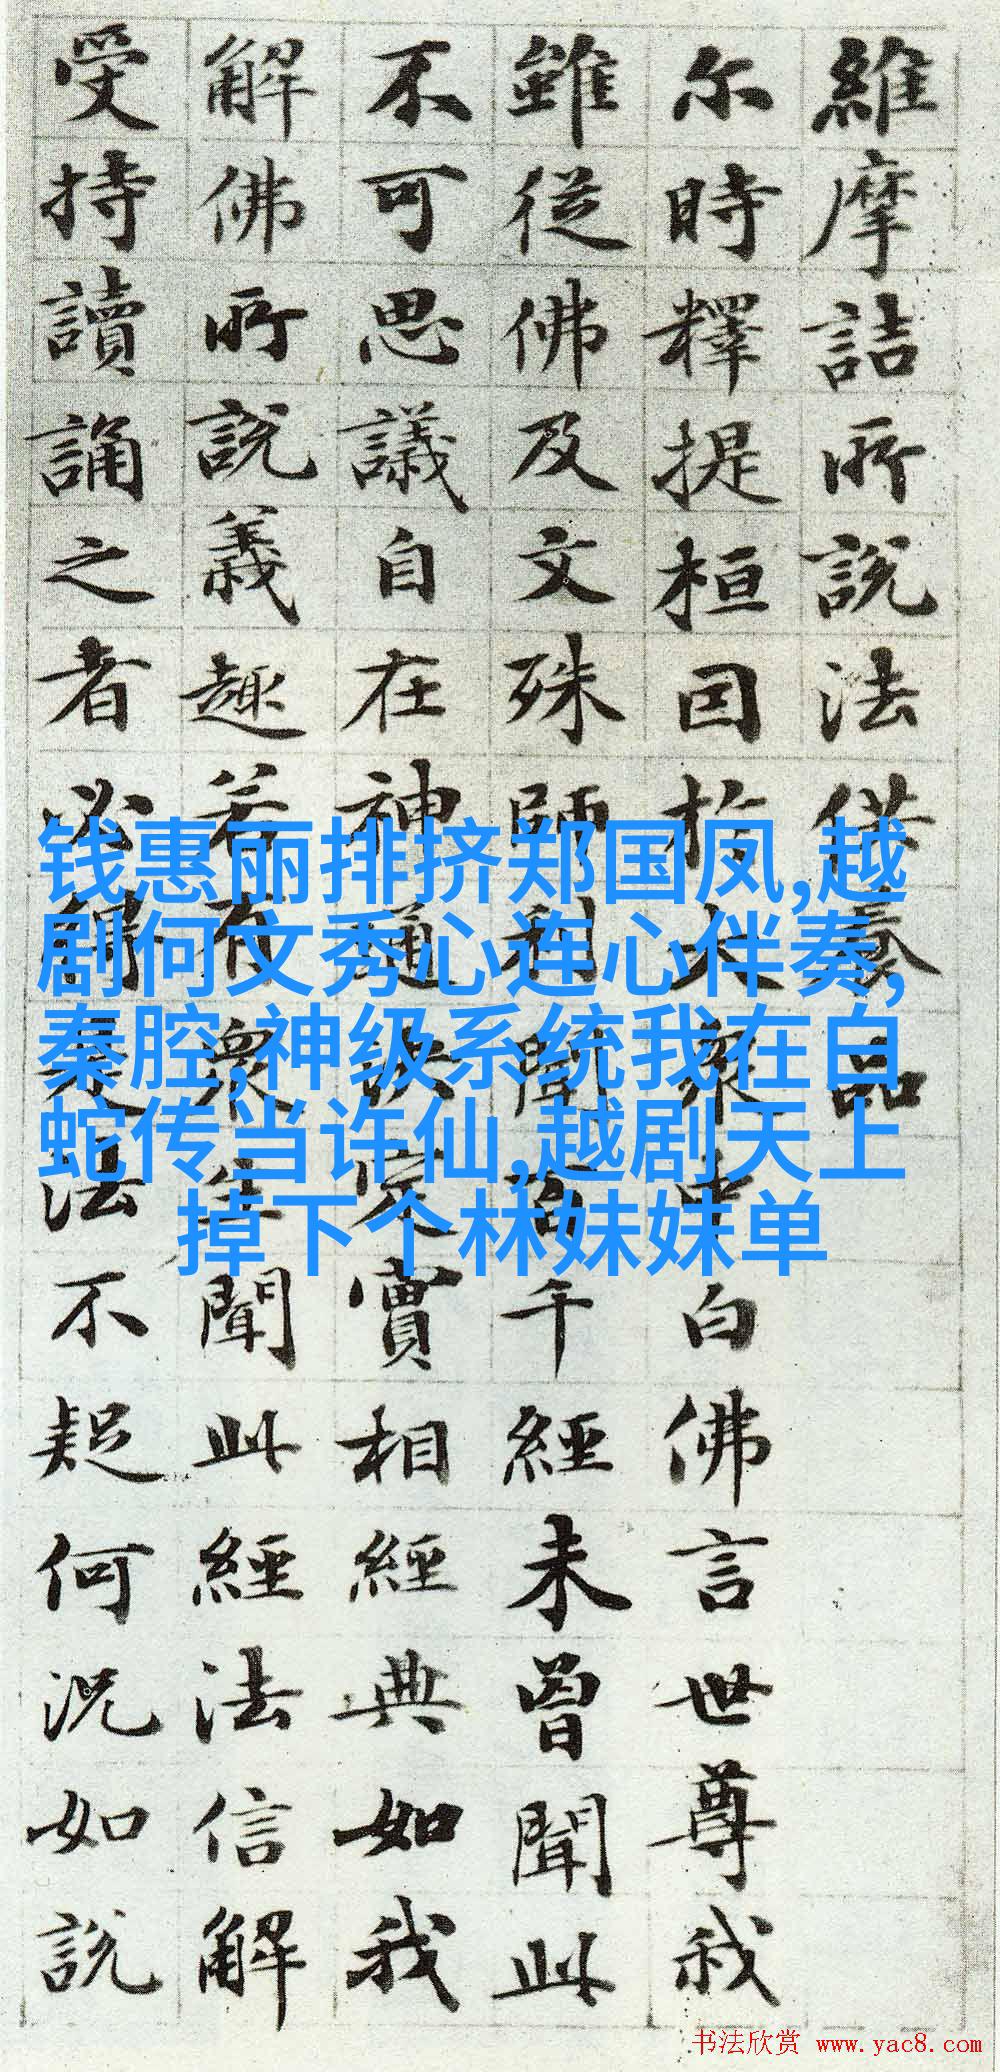 維摩詰所說法供養品
尔時釋提桓因扵大衆中白佛言世尊我
雖從佛及文殊師利聞百千經未曾聞此
不可思議自在神通決定實相經典如我
解佛所說義趣若有衆生聞此經法信解
受持讀誦之者必得是法不疑何況如說
钱惠丽排挤郑国凤,越
剧何文秀心连心伴奏,
秦腔,神级系统我在白
蛇传当许仙,越剧天上
掉下个林妹妹单
书法欣赏 www.yac8.com